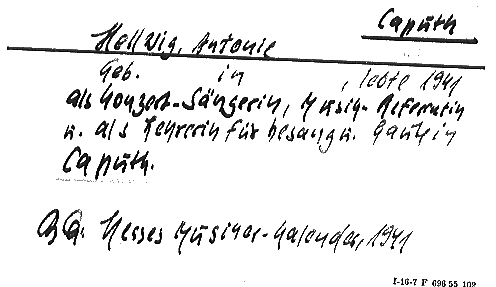 Caputh
Hellwig, Antonie
Geb. in , lebte 1941
als Konzert-Sängerin, Musik-Referentin
u. als Lehrerin für Gesang u. Laute in
Caputh.
Hesses Musiker-Kalender, 1941
I-16-7 F 696 55 102